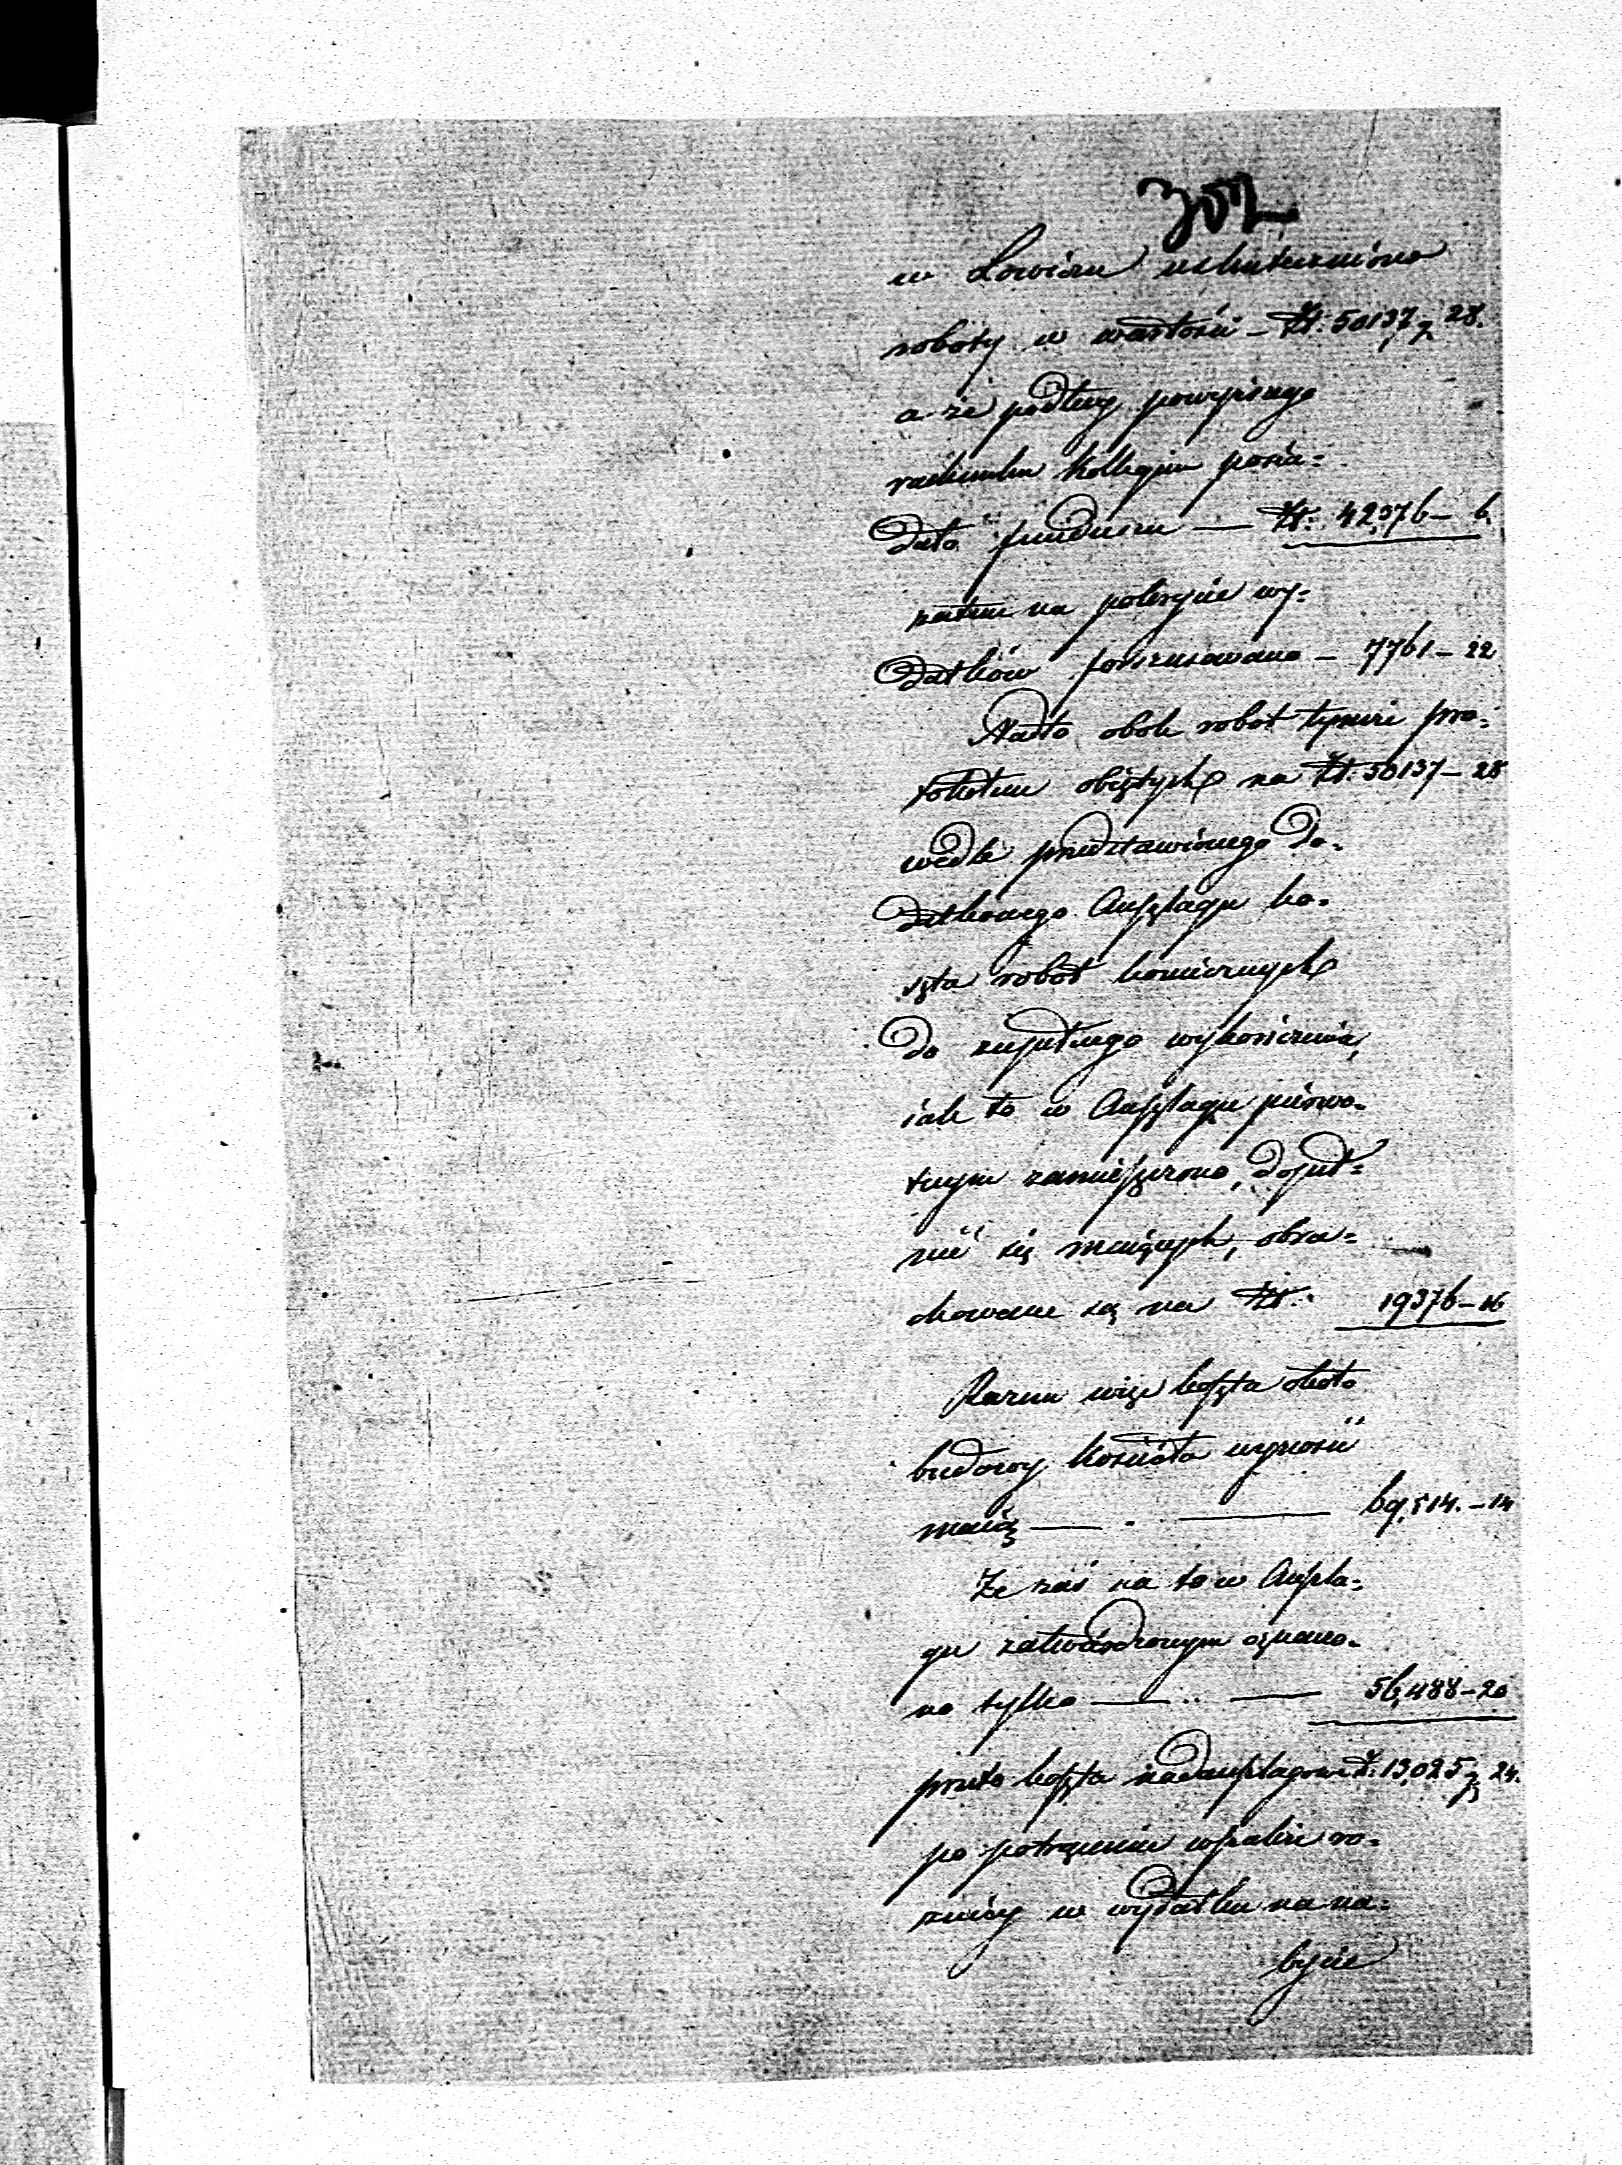 302
w Łowiczu uskuteczniono
roboty w wartości – Zł: 50137 g 28.
a że podług powyższego
rachunku Kollegium posia=
dało funduszu — Zł: 42376 – 6
zatem na pokrycie wy=
datków forszusowano – 7761 – 22
Nadto obok robot tymże pro=
tokołem obiętych na Zł: 50137 – 28
wedle przedstawionego do=
datkowego Anszlagu ko=
szta robot koniecznych
do zupełnego wykończenia,
iak to w Anszlagu pierwo=
tnym zamieszczono, dopeł=
nić się maiących, obra=
chowane są na Zł: 19376 – 16
Razem więc koszta około
budowy Kościoła wynosić
maią — . — 69,514. – 14
Że zaś na to w Anszla=
gu zatwierdzonym oznaczo=
no tylko — .. — 56,488 – 20
przeto koszta nadanszlagowe Z. 13,025 g 24.
po potrąceniu wszakże ró=
żnicy w wydatku na na=
bycie